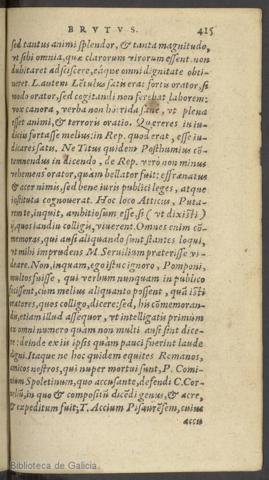 BRVTVS. 415
sed tantus animi splendor, & tanta magnitudo,
vt sibi omnia, quæ clarorum virorum essent. non
dubitaret adsciscere, eáque omni dignitate obti-
neret. L. autem Lẽtulus satis erat fortis orator, si
modo orator, sed cogitandi non ferebat laborem:
vox canora, verba non horrida sanè, vt plena
esset animi, & terroris oratio. Quæreres in iu-
diciis fortasse melius: in Rep. quod erat, esse iu-
dicares satis. Ne Titus quidem Posthumius cõ-
temnendus in dicendo, de Rep. verò non minus
vehemens orator, quàm bellator fuit: effrænatus
& acer nimis, sed bene iuris publici leges, atque
instituta cognouerat. Hoc loco Atticus, Puta-
rem te, inquit, ambitiosum esse, si (vt dixisti)
ij, quos iandiu colligis, viuerent. Omnes enim cõ-
memoras, qui ausi aliquando sunt stantes loqui,
vt mihi imprudens M. Seruilium præterisse vi-
deare. Non, inquam, ego istuc ignoro, Pomponi,
multos fuisse, qui verbum nunquam in publico
fecissent, cum melius aliquanto possent, quã isti
oratores, quos colligo, dicere: sed, his cõmemoran-
dis, etiam illud assequor, vt intelligatis primùm
ex omni numero quam non multi ausi sint dice-
re: deinde ex iis ipsis quàm pauci fuerint laude
digni. Itaque ne hoc quidem equites Romanos,
amicos nostros, qui nuper mortui sunt, P. Comi-
nium Spoletinum, quo accusante, defendi C. Cor-
nelũ, in quo & compositũ dicẽdi genus, & acre,
& expeditum fuit; T. Accium Pisaurẽsem, cuius
accu
Biblioteca de Galicia